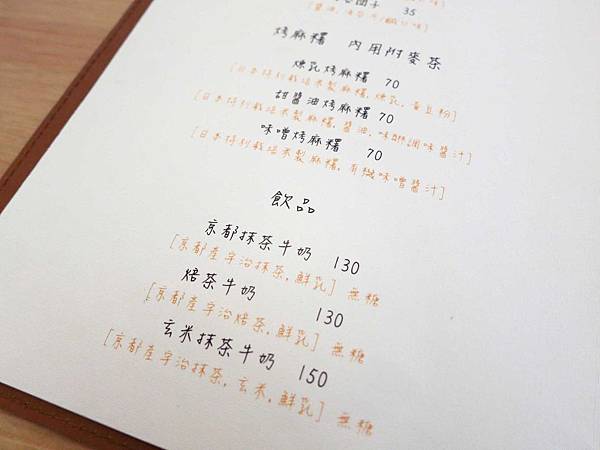 糰子 35
烤麻糬 內用附麥茶
煉乳烤麻糬 70
[日本特別栽培米製麻糬,煉乳,黃豆粉]
甜醬油烤麻糬 70
[日本特別栽培米製麻糬,醬油,味醂調味醬汁]
味噌烤麻糬 70
[日本特別栽培米製麻糬,有機味噌醬汁]
飲品
京都抹茶牛奶 130
[京都產宇治抹茶,鮮乳] 無糖
焙茶牛奶 130
[京都產宇治焙茶,鮮乳] 無糖
玄米抹茶牛奶 150
[京都產宇治抹茶,玄米,鮮乳] 無糖